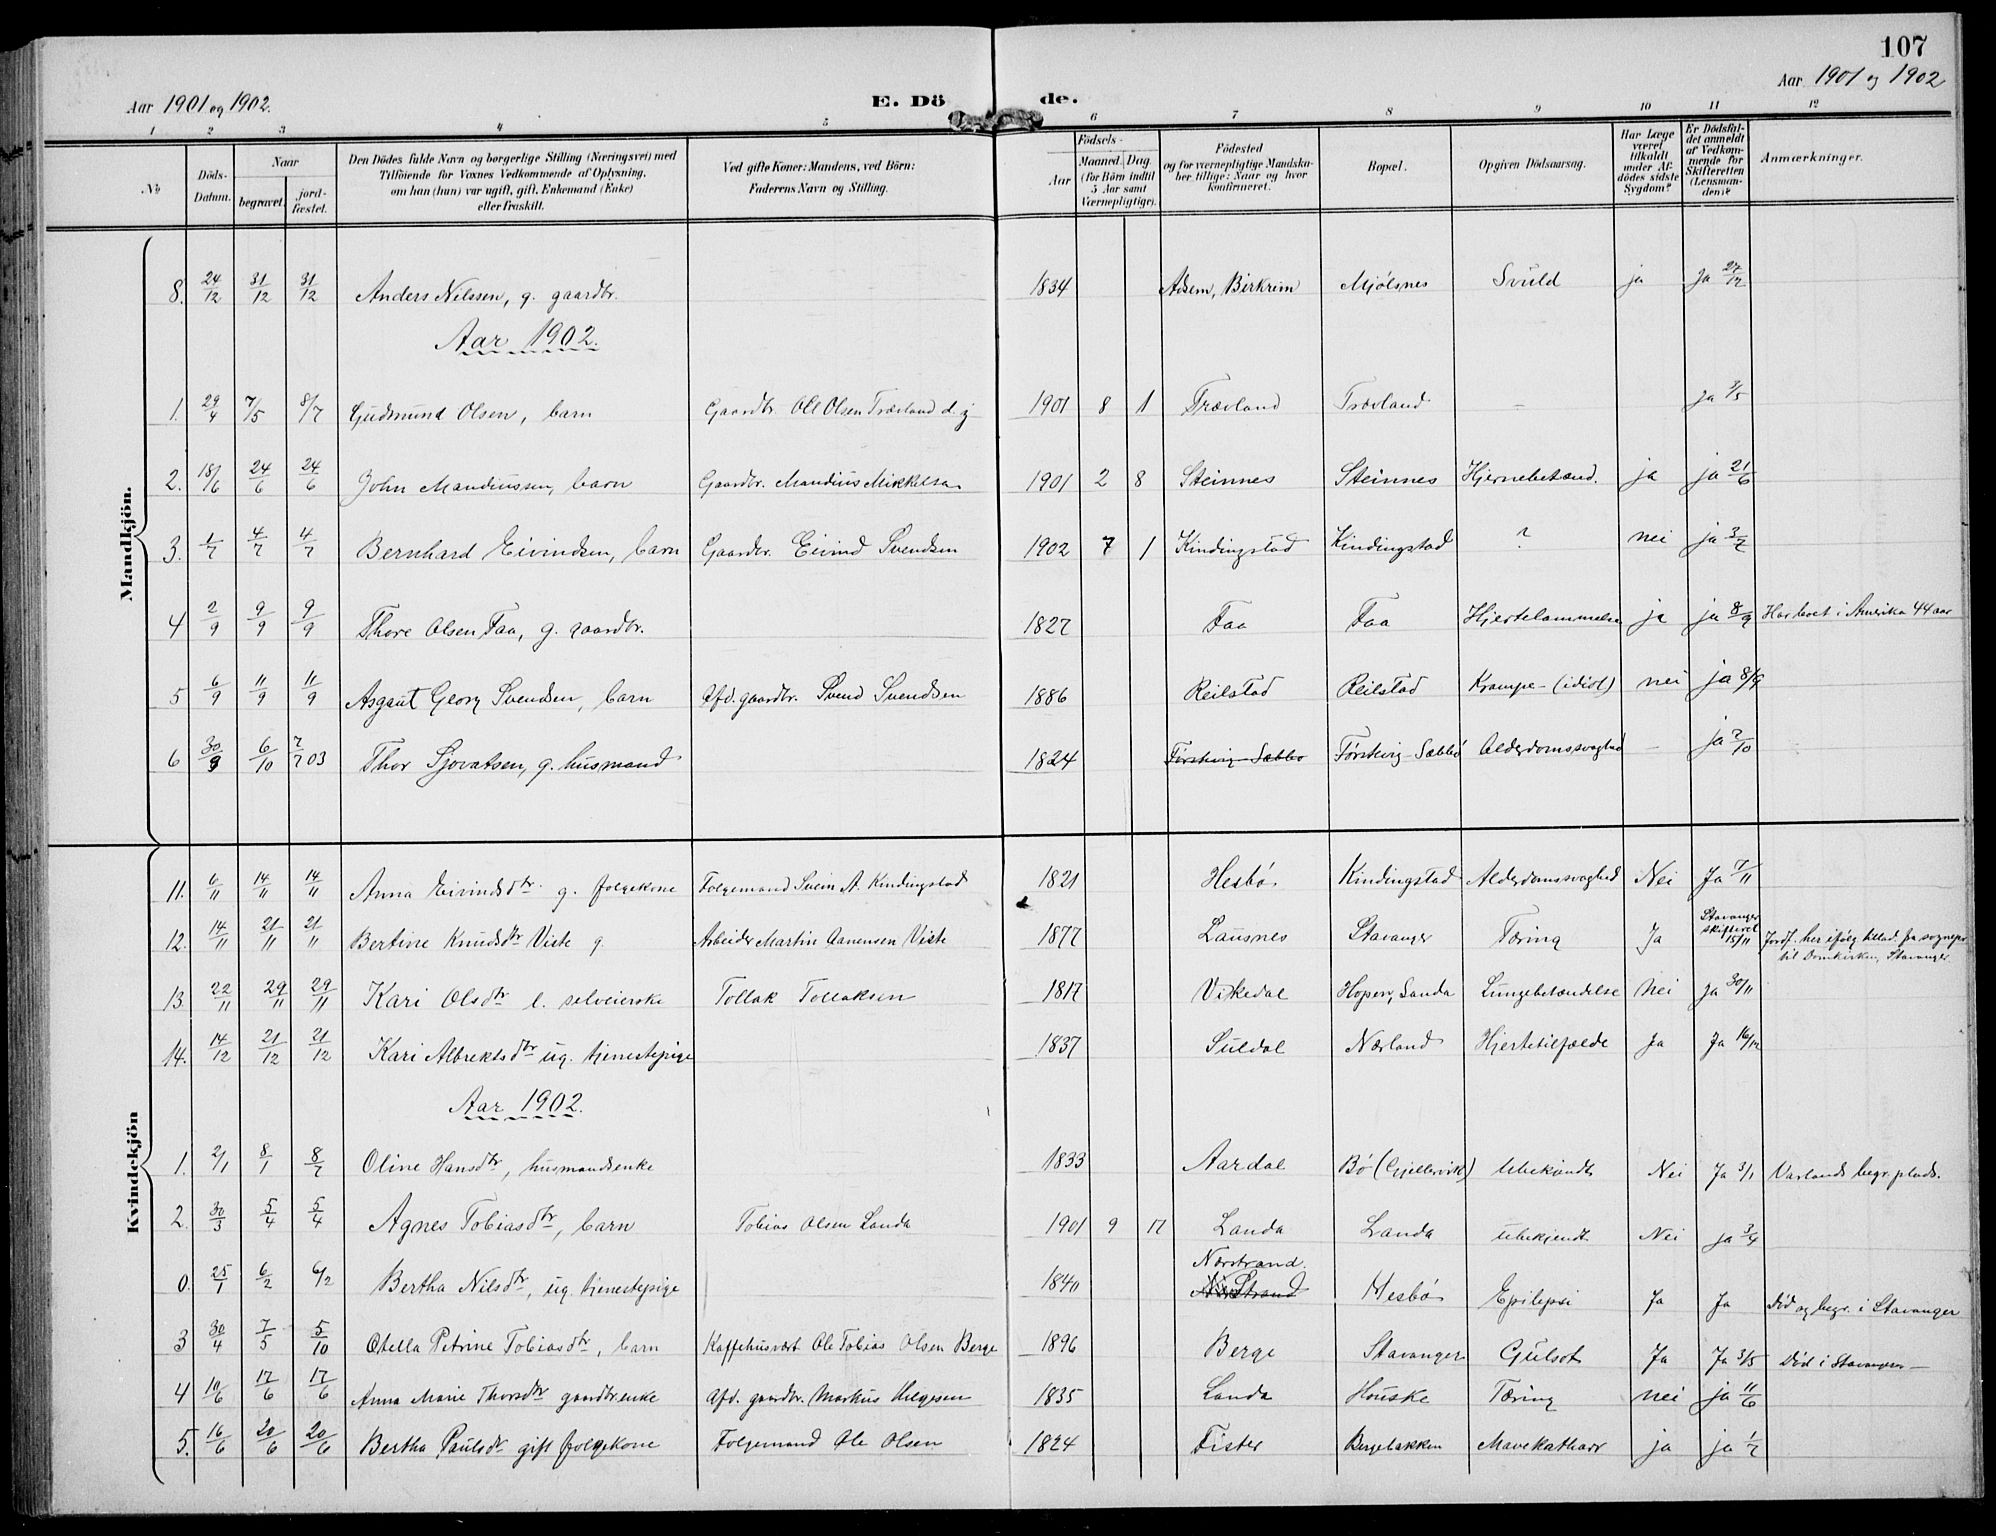 107
Aar 1901 og 1902.
E. Dö de.
Aar 1901 og 1902
1 2 3 4 5 6 7 8 9 10 11 12
No
Döds-Datum.
Naar
begravet.
jord-fæstet.
Den Dödes fulde Navn og borgerlige Stilling (Næringsvei) med
Tilföiende for Voxnes Vedkommende af Oplysning,
om han (hun) var ugift, gift, Enkemand (Enke)
eller fraskilt.
Ved gifte Koner: Mandens, ved Börn:
Faderens Navn og Stilling.
Födsels-
Aar
Maaned. Dag.
(for Börn indtil
5 Aar samt
Værnepligtige).
Födested
og for værnepligtige Mandska-
ber tillige: Naar og hvor
konfirmeret.
Bopæl.
Opgiven Dödsaarsag.
Har Læge
været
tilkaldt
under Af-
dödes sidste
Sygdom?
Er Dödsfal-
det anmeldt
af Vedkom-
mende for
Skifteretten
(Lensman-
den)?
Anmærkninger.
Mandkjön.
8. 24/12 31/12 31/12 Anders Nilssen, g. gaardbr. 1834 Birkrem Mjølsnes Svuld ja Ja 27/12
Aar 1902.
1. 29/4 7/5 8/7 Gudmund Olsen, barn Gaardbr. Ole Olsen Trævland d. y 1901 8 1 Trævland Trævland - ja 3/5
2. 18/6 24/6 24/6 John Mandiussen, barn Gaardbr. Mandius Mikkelsen 1901 2 8 Steinnes Steinnes Hjernebetænd. ja ja 21/6
3. 1/7 4/7 4/7 Bernhard Eivindsen, barn Gaardbr. Eivind Svendsen 1902 7 1 Kindingstad Kindingstad ? nei ja 3/7
4 2/9 9/9 9/9 Thore Olsen Faa, g. gaardbr. 1827 Faa Faa Hjertelammelse ja ja 8/9 Har boet i Amerika 44 aar
5 6/9 11/9 11/9 Asgaut Georg Svendsen, barn Afd. gaardbr. Svend Svendsen 1886 Reilstad Reilstad Krampe - (idiot) nei ja 8/9
6 30/9 6/10 7/7 03 Thor Sjovatsen, g. husmand 1824 Førskvig-Sæbbø Førskvig-Sæbbø Alderdomssvaghed - ja 7/10
Kvindekjön
11. 6/11 14/11 14/11 Anna Eivindsdtr. g. folgekone Folgemand Svein A. Kindingstad 1821 Hesbø Kindingstad Alderdomssvaghed Nei Ja 7/11
12. 14/11 21/11 21/11 Bertine Knudsdtr Viste g. Arbeider Martin Aanensen Viste 1877 Lausnes Stavanger Tæring Ja Stavanger skifteret 15/11 Jordf. her ifølg. tillad. fra sognepr. til Domkirken, Stavanger
13 22/11 29/11 29/11 Kari Olsdtr e. selveierske Tollak Tollaksen 1817 Vikedal Hopen, Landa Lungebetændelse Nei Ja 30/11
14. 14/12 21/12 21/12 Kari Albrektsdtr ug. tjenestepige 1837 Suldal Nærland Hjertetilfælde Ja Ja 16/12
Aar 1902.
1. 2/1 8/1 8/7 Oline Hansdtr, husmandsenke 1833 Aardal Bø (Gjellervik) Ubekiendt Nei Ja 3/1 Varlands begr. plads.
2. 30/3 5/4 5/4 Agnes Tobiasdtr, barn Tobias Olsen Landa 1901 9 17 Landa Landa ubekjendt Nei ja 3/4
0. 25/1 6/2 6/2 Bertha Nilsdtr, ug. tjenestepige 1840 Nærstrand. Hesbø Epilepsi Ja Ja Død og begr. i Stavanger
3 30/4 7/5 5/10 Otella Petrine Tobiasdtr, barn Kaffehusvært Ole Tobias Olsen Berge 1896 Berge Stavanger Gulsot Ja Ja 3/5 Død i Stavanger -
4 10/6 17/6 17/6 Anna Marie Thorsdtr gaardbr.enke Afd. gaardbr. Markus Helgesen 1835 Landa Houske Tæring nei ja 11/6
5. 16/6 20/6 20/6 Bertha Paulsdtr gift folgekone Folgemand Ole Olsen 1824 Fister Bergeløkken Mavekatharr ja ja 1/7